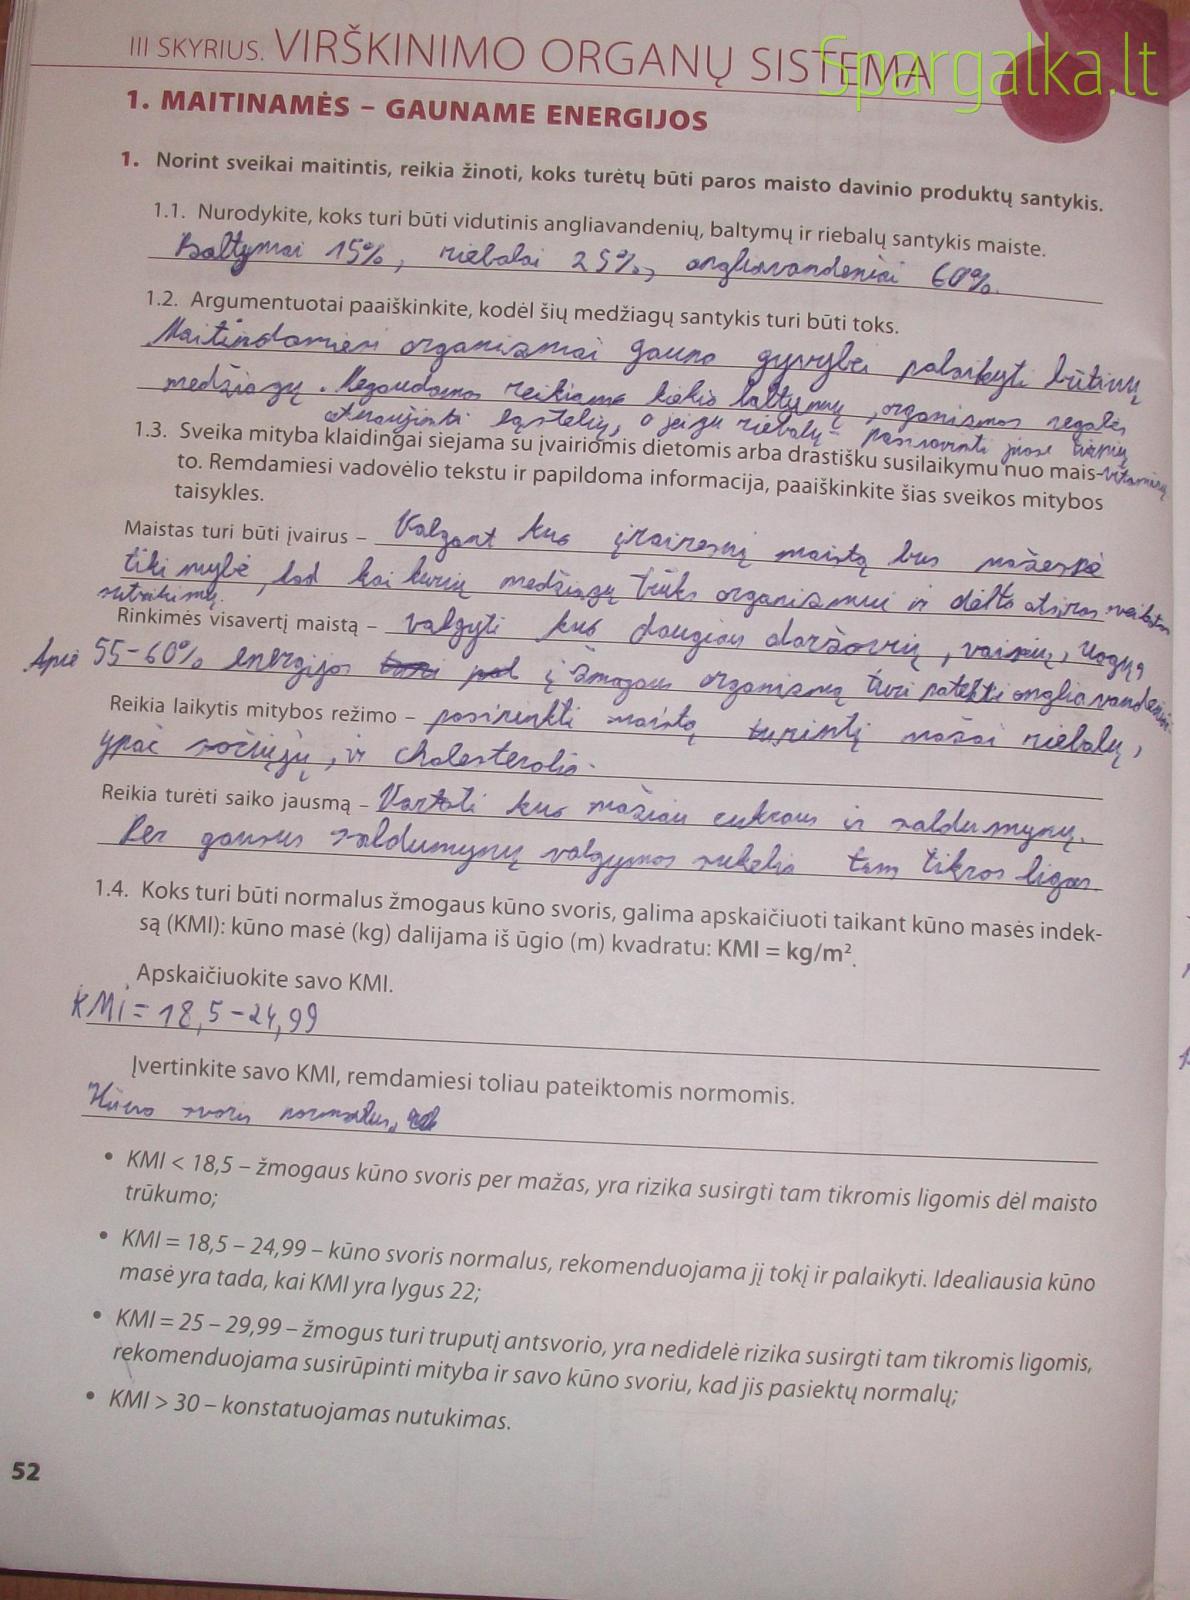 III SKYRIUS. VIRŠKINIMO ORGANŲ SISTEMA
Spargalka.lt
1. MAITINAMĖS – GAUNAME ENERGIJOS
1. Norint sveikai maitintis, reikia žinoti, koks turėtų būti paros maisto davinio produktų santykis.
1.1. Nurodykite, koks turi būti vidutinis angliavandenių, baltymų ir riebalų santykis maiste.
Baltymai 15%, riebalai 25%, angliavandeniai 60%.
1.2. Argumentuotai paaiškinkite, kodėl šių medžiagų santykis turi būti toks.
Maitindamiesi organizmai gauna gyvybei palaikyti būtinų
medžiagų. Negaudamas reikiamo kiekio baltymų, organizmas negalės
atnaujinti ląstelių, o jeigu riebalų – pasisavinti juose tirpių
vitaminų
1.3. Sveika mityba klaidingai siejama su įvairiomis dietomis arba drastišku susilaikymu nuo mais-
to. Remdamiesi vadovėlio tekstu ir papildoma informacija, paaiškinkite šias sveikos mitybos
taisykles.
Maistas turi būti įvairus – Valgant kuo įvairesnį maistą bus mažesnė
tikimybė, kad kai kurių medžiagų trūks organizmui ir dėlto atsiras sveikatos
sutrikimų.
Rinkimės visavertį maistą – valgyti kuo daugiau daržovių, vaisių, uogų,
Apie 55-60% energijos į žmogaus organizmą turi patekti angliavandeniai.
Reikia laikytis mitybos režimo – pasirinkti maistą turintį mažai riebalų,
ypač sočiųjų, ir cholesterolio.
Reikia turėti saiko jausmą – Vartoti kuo mažiau cukraus ir saldumynų.
Per gausus saldumynų valgymas sukelia tam tikras ligas.
1.4. Koks turi būti normalus žmogaus kūno svoris, galima apskaičiuoti taikant kūno masės indek-
są (KMI): kūno masė (kg) dalijama iš ūgio (m) kvadratu: KMI = kg/m².
Apskaičiuokite savo KMI.
KMI = 18,5 – 24,99
Įvertinkite savo KMI, remdamiesi toliau pateiktomis normomis.
Kūno svoris normalus.
• KMI < 18,5 – žmogaus kūno svoris per mažas, yra rizika susirgti tam tikromis ligomis dėl maisto
trūkumo;
• KMI = 18,5 – 24,99 – kūno svoris normalus, rekomenduojama jį tokį ir palaikyti. Idealiausia kūno
masė yra tada, kai KMI yra lygus 22;
• KMI = 25 – 29,99 – žmogus turi truputį antsvorio, yra nedidelė rizika susirgti tam tikromis ligomis,
rekomenduojama susirūpinti mityba ir savo kūno svoriu, kad jis pasiektų normalų;
• KMI > 30 – konstatuojamas nutukimas.
52